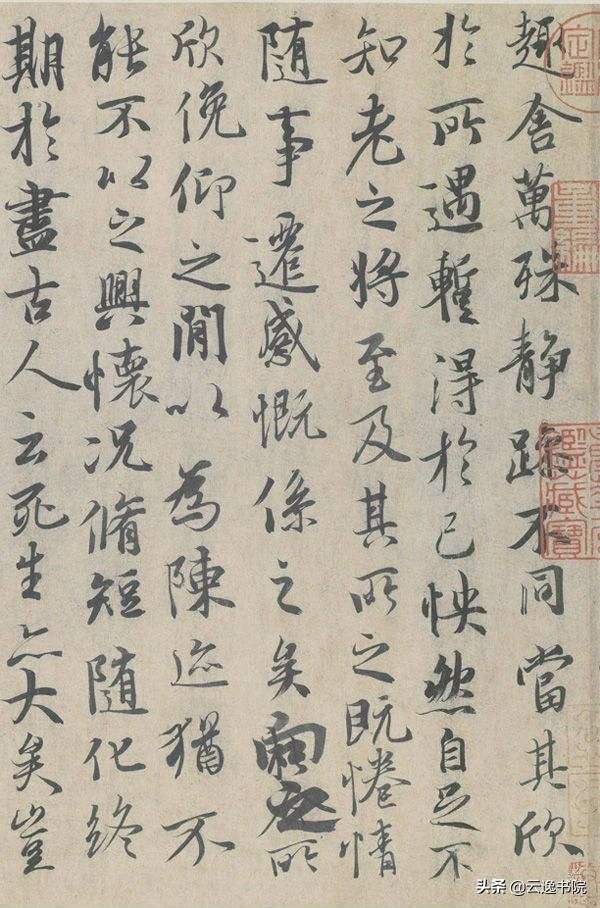 趣舍萬殊静躁不同當其欣
於所遇蹔得於己怏然自足不
知老之將至及其所之既惓情
随事遷感慨係之矣向之所
欣俛仰之閒以為陳迹猶不
能不以之興懷況脩短随化終
期於盡古人云死生亦大矣豈
頭条 @云逸书院